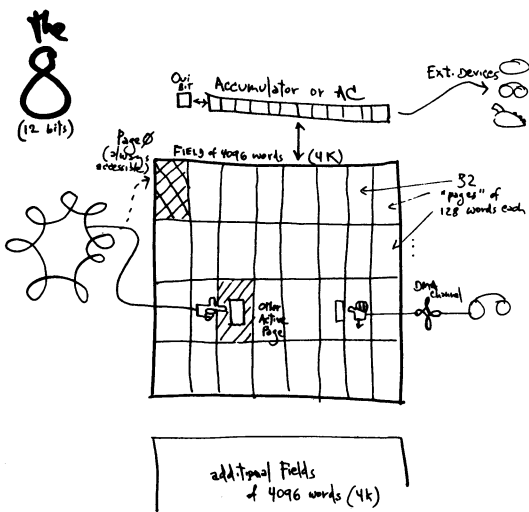 the
8
(12 bits)
Oui
BIT
Accumulator or AC
Ext. Devices
Page Ø
(always
accessible)
FIELD of 4096 words (4K)
32
"pages" of
128 words each
Other
Active
Page
DMA
Channel
additional Fields
of 4096 words (4K)